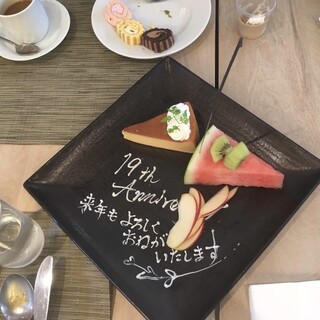 19th
Annive
来年も よろしく
おねがい
いたします